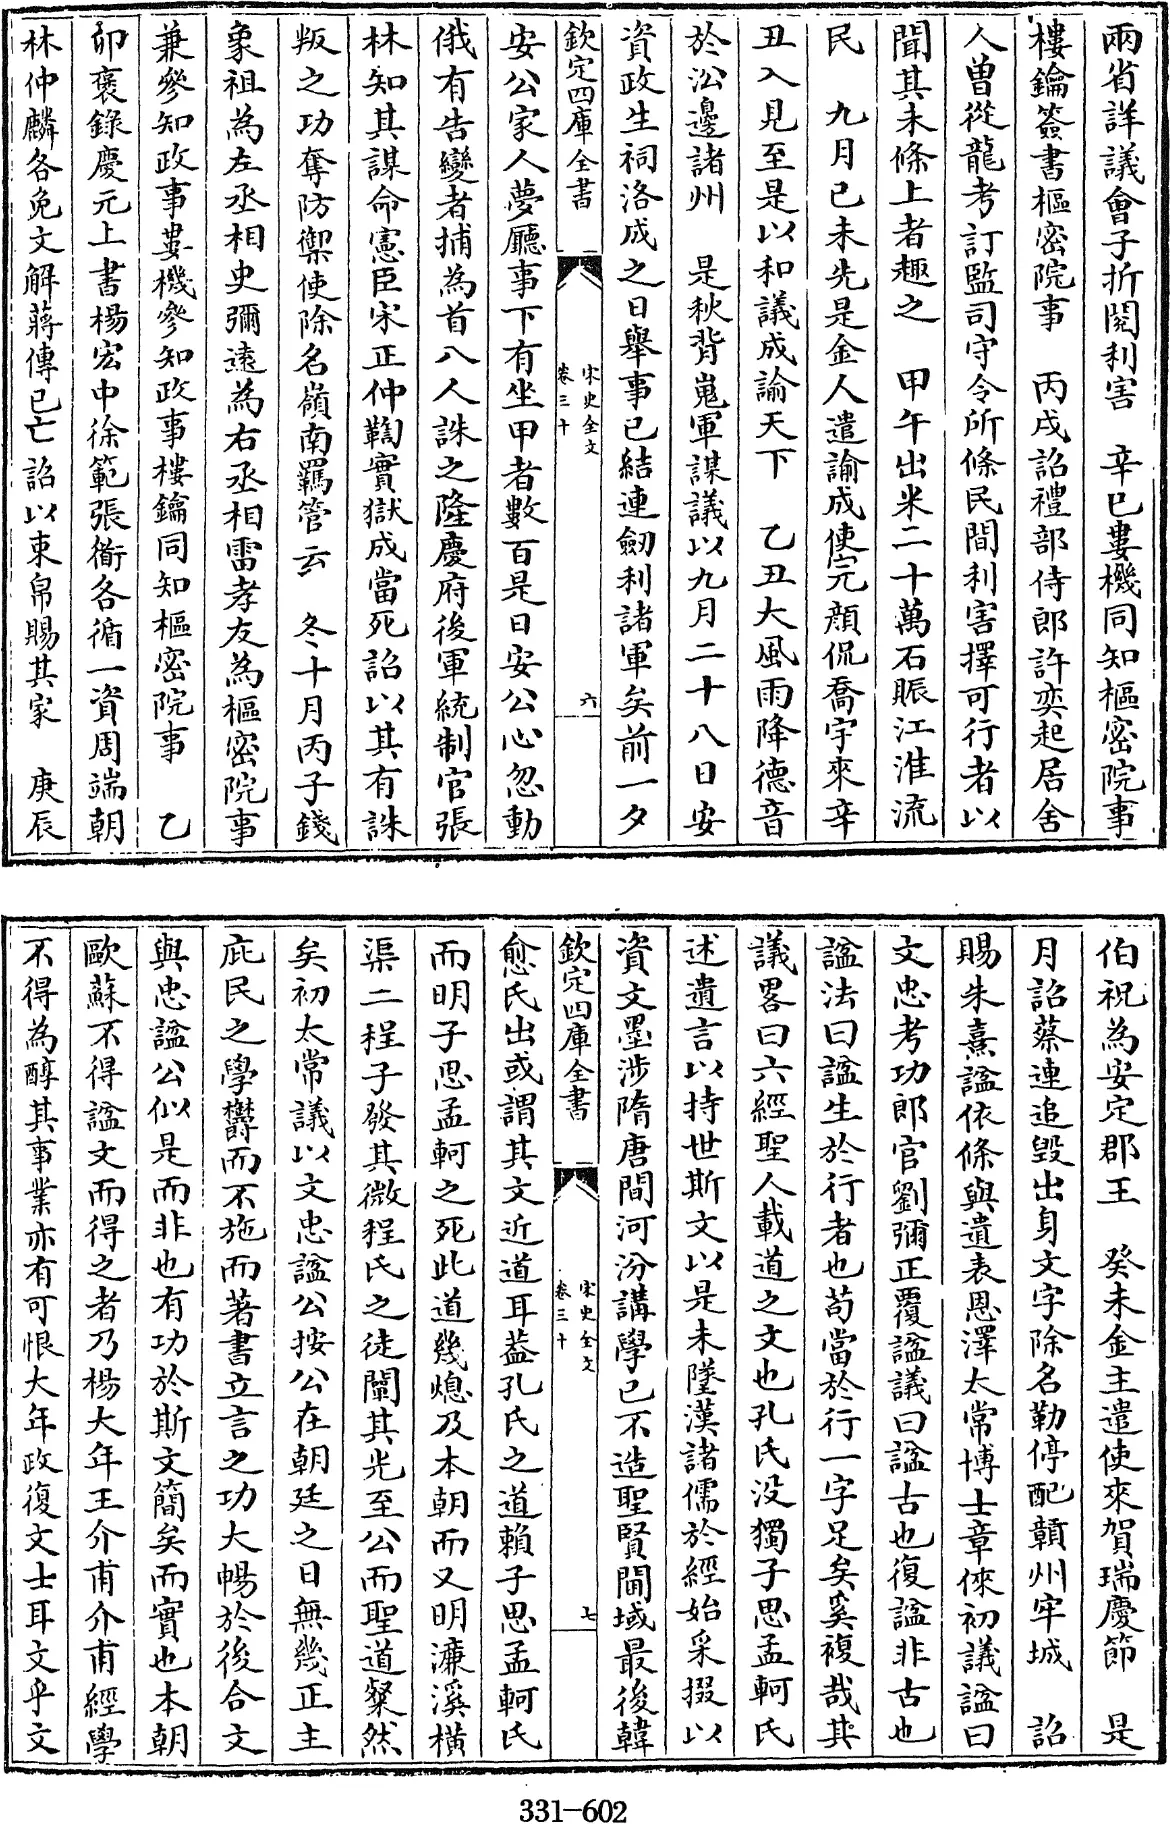 兩省詳議會子折閱利害　辛巳婁機同知樞密院事
樓鑰簽書樞密院事　丙戌詔禮部侍郎許奕起居舍
人曾從龍考訂監司守令所條民間利害擇可行者以
聞其未條上者趣之　甲午出米二十萬石賑江淮流
民　九月己未先是金人遣諭成使完顏侃喬宇來辛
丑入見至是以和議成諭天下　乙丑大風雨降德音
於沿邊諸州　是秋背嵬軍謀議以九月二十八日安
資政生祠洛成之日舉事已結連劒利諸軍矣前一夕
欽定四庫全書　宋史全文
卷三十　六
安公家人夢廳事下有坐甲者數百是日安公心忽動
俄有告變者捕為首八人誅之隆慶府後軍統制官張
林知其謀命憲臣宋正仲鞫實獄成當死詔以其有誅
叛之功奪防禦使除名嶺南羈管云　冬十月丙子錢
象祖為左丞相史彌遠為右丞相雷孝友為樞密院事
兼參知政事婁機參知政事樓鑰同知樞密院事　乙
卯褒錄慶元上書楊宏中徐範張衜各循一資周端朝
林仲麟各免文解蔣傅已亡詔以束帛賜其家　庚辰
伯柷為安定郡王　癸未金主遣使來賀瑞慶節　是
月詔蔡璉追毀出身文字除名勒停配贛州牢城　詔
賜朱熹諡依條與遺表恩澤太常博士章倈初議諡曰
文忠考功郎官劉彌正覆諡議曰諡古也復諡非古也
諡法曰諡生於行者也苟當於行一字足矣奚複哉其
議畧曰六經聖人載道之文也孔氏沒獨子思孟軻氏
述遺言以持世斯文以是未墜漢諸儒於經始采掇以
資文墨涉隋唐間河汾講學已不造聖賢閫域最後韓
欽定四庫全書　宋史全文
卷三十　七
愈氏出或謂其文近道耳葢孔氏之道賴子思孟軻氏
而明子思孟軻之死此道幾熄及本朝而又明濂溪橫
渠二程子發其微程氏之徒闡其光至公而聖道粲然
矣初太常議以文忠諡公按公在朝廷之日無幾正主
庇民之學鬱而不施而著書立言之功大暢於後合文
與忠諡公似是而非也有功於斯文簡矣而實也本朝
歐蘇不得諡文而得之者乃楊大年王介甫介甫經學
不得為醇其事業亦有可恨大年政復文士耳文乎文
331-602